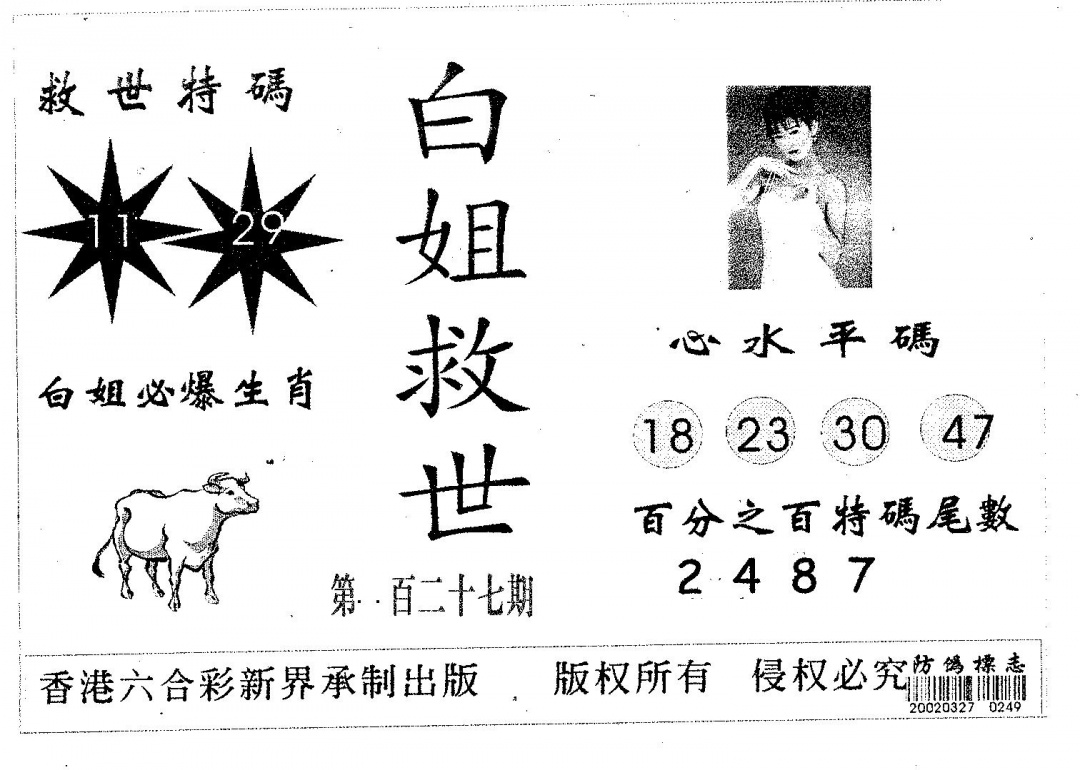 救世特碼
11 29
白姐必爆生肖
白姐救世
第一百二十七期
心水平碼
18 23 30 47
百分之百特碼尾數
2 4 8 7
香港六合彩新界承制出版 版权所有 侵权必究
防僞標志
20020327 0249